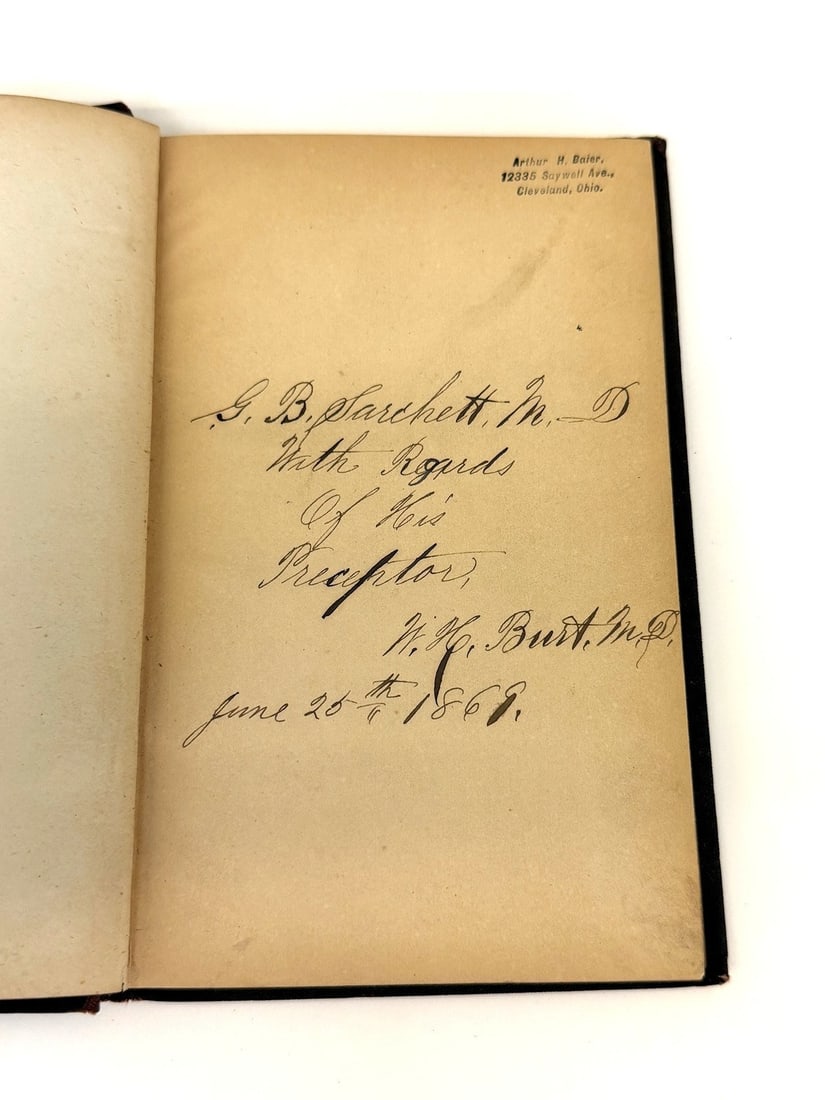 Arthur H. Baier,
12335 Saywell Ave.,
Cleveland, Ohio.
G. B. Sarchett, M. D
With Regards
Of His
Preceptor,
W. H. Burt, M. D.
June 25th 1869.